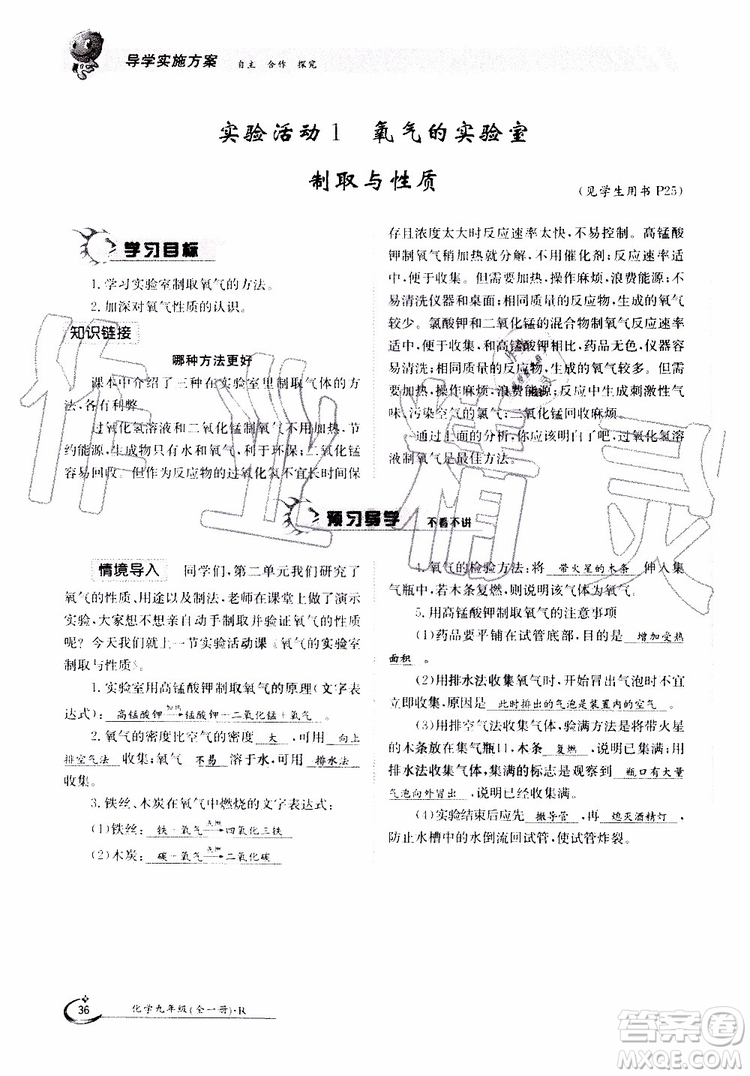 导学实施方案 自主 合作 探究
实验活动1 氧气的实验室
制取与性质
(见学生用书 P25)
学习目标
1.学习实验室制取氧气的方法。
2.加深对氧气性质的认识。
知识链接
哪种方法更好
课本中介绍了三种在实验室里制取气体的方法,各有利弊。
过氧化氢溶液和二氧化锰制氧气不用加热,节
约能源,生成物只有水和氧气,利于环保;二氧化锰
容易回收。但是作为反应物的过氧化氢不宜长时间保
存且浓度太大时反应速率太快,不易控制。高锰酸
钾制氧气稍加热就分解,不用催化剂。反应速率适
中,便于收集。但是需要加热,操作麻烦,浪费能源;不
易清洗仪器和桌面;相同质量的反应物,生成的氧气
较少。氯酸钾和二氧化锰的混合物制氧气反应速率
适中,便于收集。与高锰酸钾相比,药品无色,仪器容
易清洗,相同质量的反应物,生成的氧气多。但是需
要加热,操作麻烦,浪费能源;有时会生成刺激性气
味、污染空气的氯气;二氧化锰回收麻烦。
通过上面的分析,你应该知道用过氧化氢溶
液制氧气是最佳方法。
预习导学 不看不讲
情境导入 同学们,第二单元我们研究了
氧气的性质、用途以及制法,老师在课堂上做了演示
实验,大家想不想亲自动手制取并验证氧气的性质
呢?今天我们就上一节实验活动课《氧气的实验室
制取与性质》。
1.实验室用高锰酸钾制取氧气的原理(文字表
达式): 高锰酸钾 加热→ 锰酸钾+二氧化锰+氧气 。
2.氧气的密度比空气的密度 大 ,可用 向上
排空气法 收集;氧气 不易 溶于水,可用 排水法
收集。
3.铁丝、木炭在氧气中燃烧的文字表达式:
(1)铁丝: 铁+氧气 点燃→ 四氧化三铁
(2)木炭: 碳+氧气 点燃→ 二氧化碳
4.氧气的检验方法:将 带火星的木条 伸入集
气瓶中,若木条复燃,则说明该气体为氧气。
5.用高锰酸钾制取氧气的注意事项
(1)药品要平铺在试管底部,目的是 增加受热
面积 。
(2)用排水法收集氧气时,开始有气泡时不宜
立即收集,原因是 此时排出的气泡是装置内的空气 。
(3)用排空气法收集气体,验满方法是将带火星
的木条放在集气瓶口,木条 复燃 ,说明已集满;用
排水法收集气体,集满的标志是观察到 瓶口有大量
气泡向外冒出 。
(4)实验结束后应先 撤导管 ,再 熄灭酒精灯 ,
防止水槽中的水倒流回试管,使试管炸裂。
36 化学九年级(全一册)·R
作业精灵
答案圈
MXQE.COM